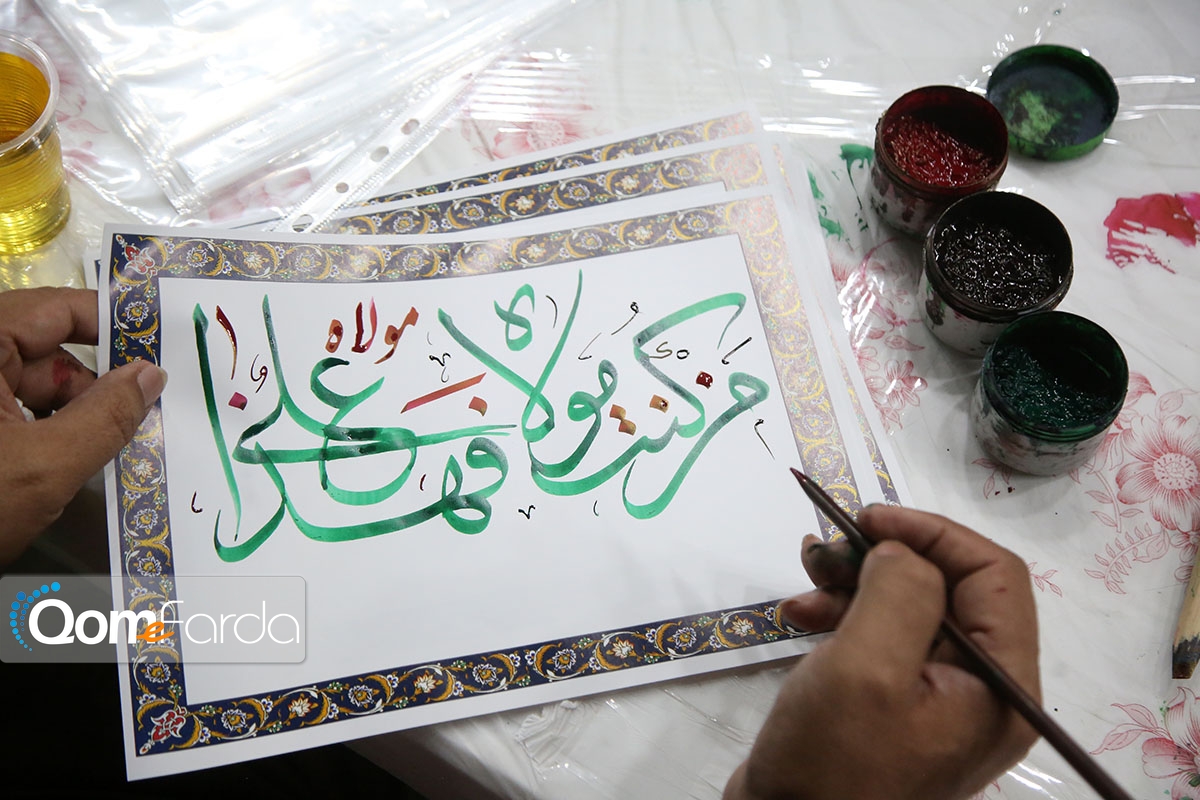 من کنت مولاه فهذا علی مولاه
QomeFarda